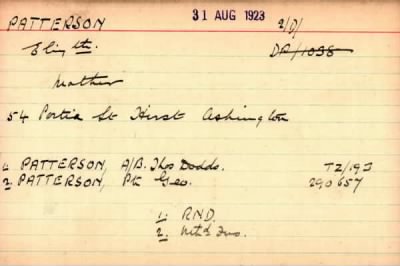 PATTERSON 31 AUG 1923 2/D/
Elizth. DP/1038
Mother
54 Portia St Hirst Ashington
1. PATTERSON, A/B. Thos Dodds. TZ/193
2. PATTERSON, Pte Geo. 290657
1. RND.
2. Nthd Fus.